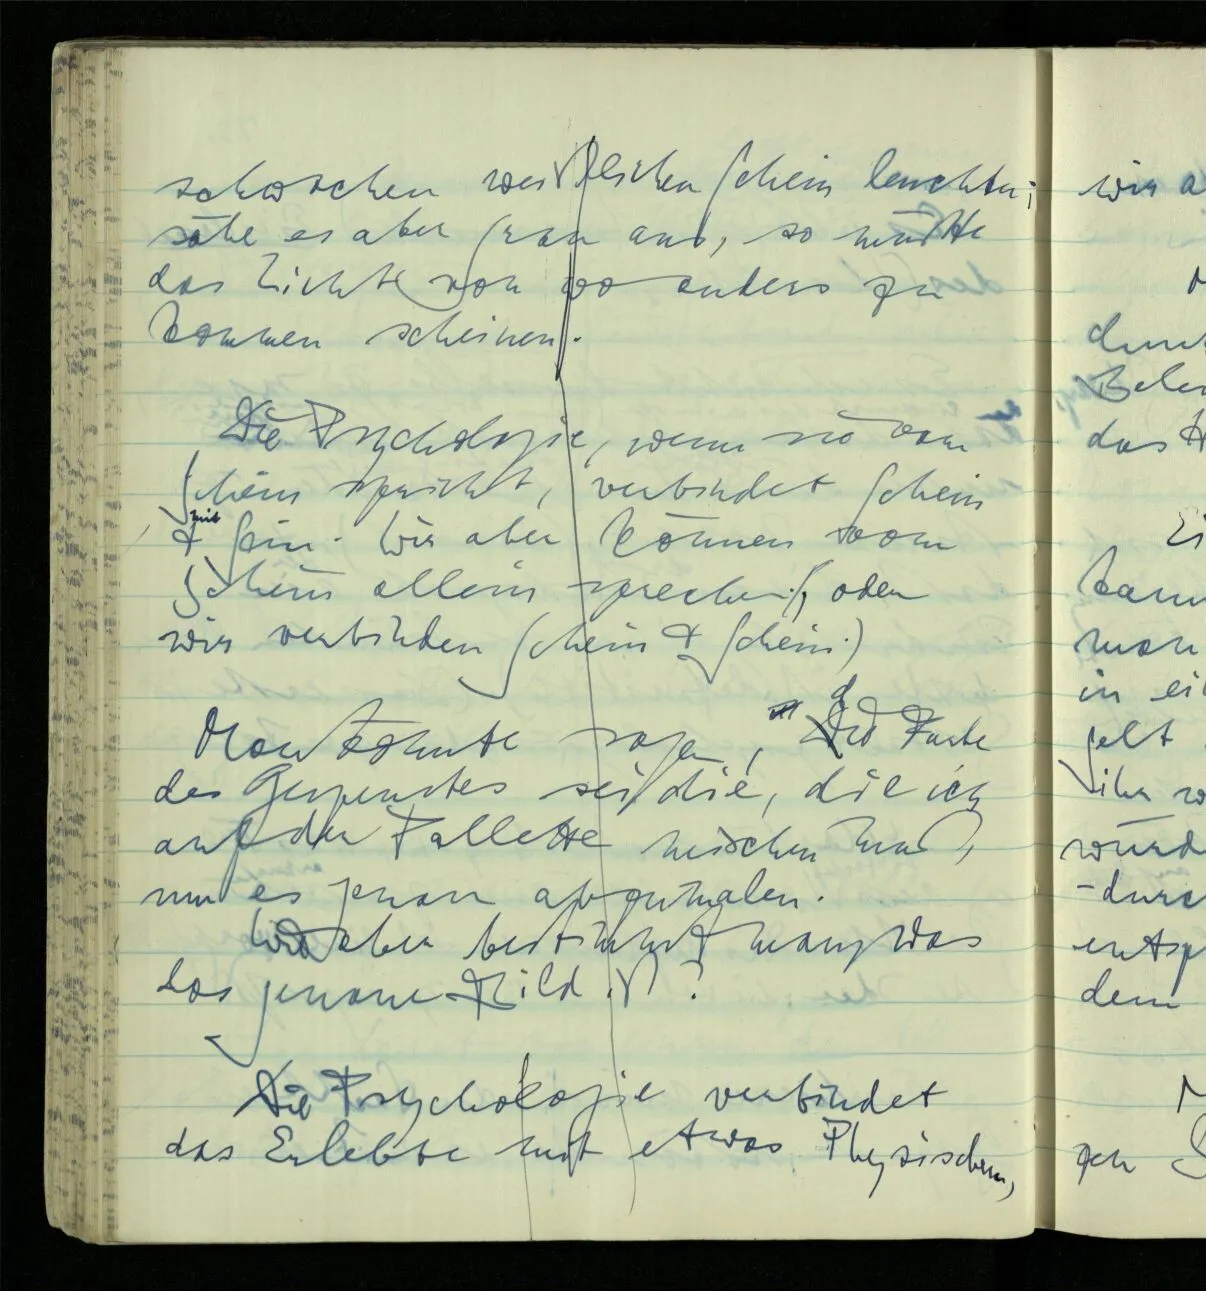 schwachen weißlichen Schein leuchten;
sähe es aber grau aus, so müßte
das Licht von wo anders zu
kommen scheinen.
Die Psychologie, wenn sie vom
Schein spricht, verbindet Schein
mit
& Sein. Wir aber können vom
Schein allein sprechen, oder
wir verbinden Schein & Schein.)
Man könnte sagen, die Farbe
des Gespenstes sei die, die ich
auf der Pallette mischen muß,
um es genau abzumalen.
Wie aber bestimmt man, was
das genaue Bild ist?
Die Psychologie verbindet
das Erlebte mit etwas Physischem,
wir
das
man
in
dem